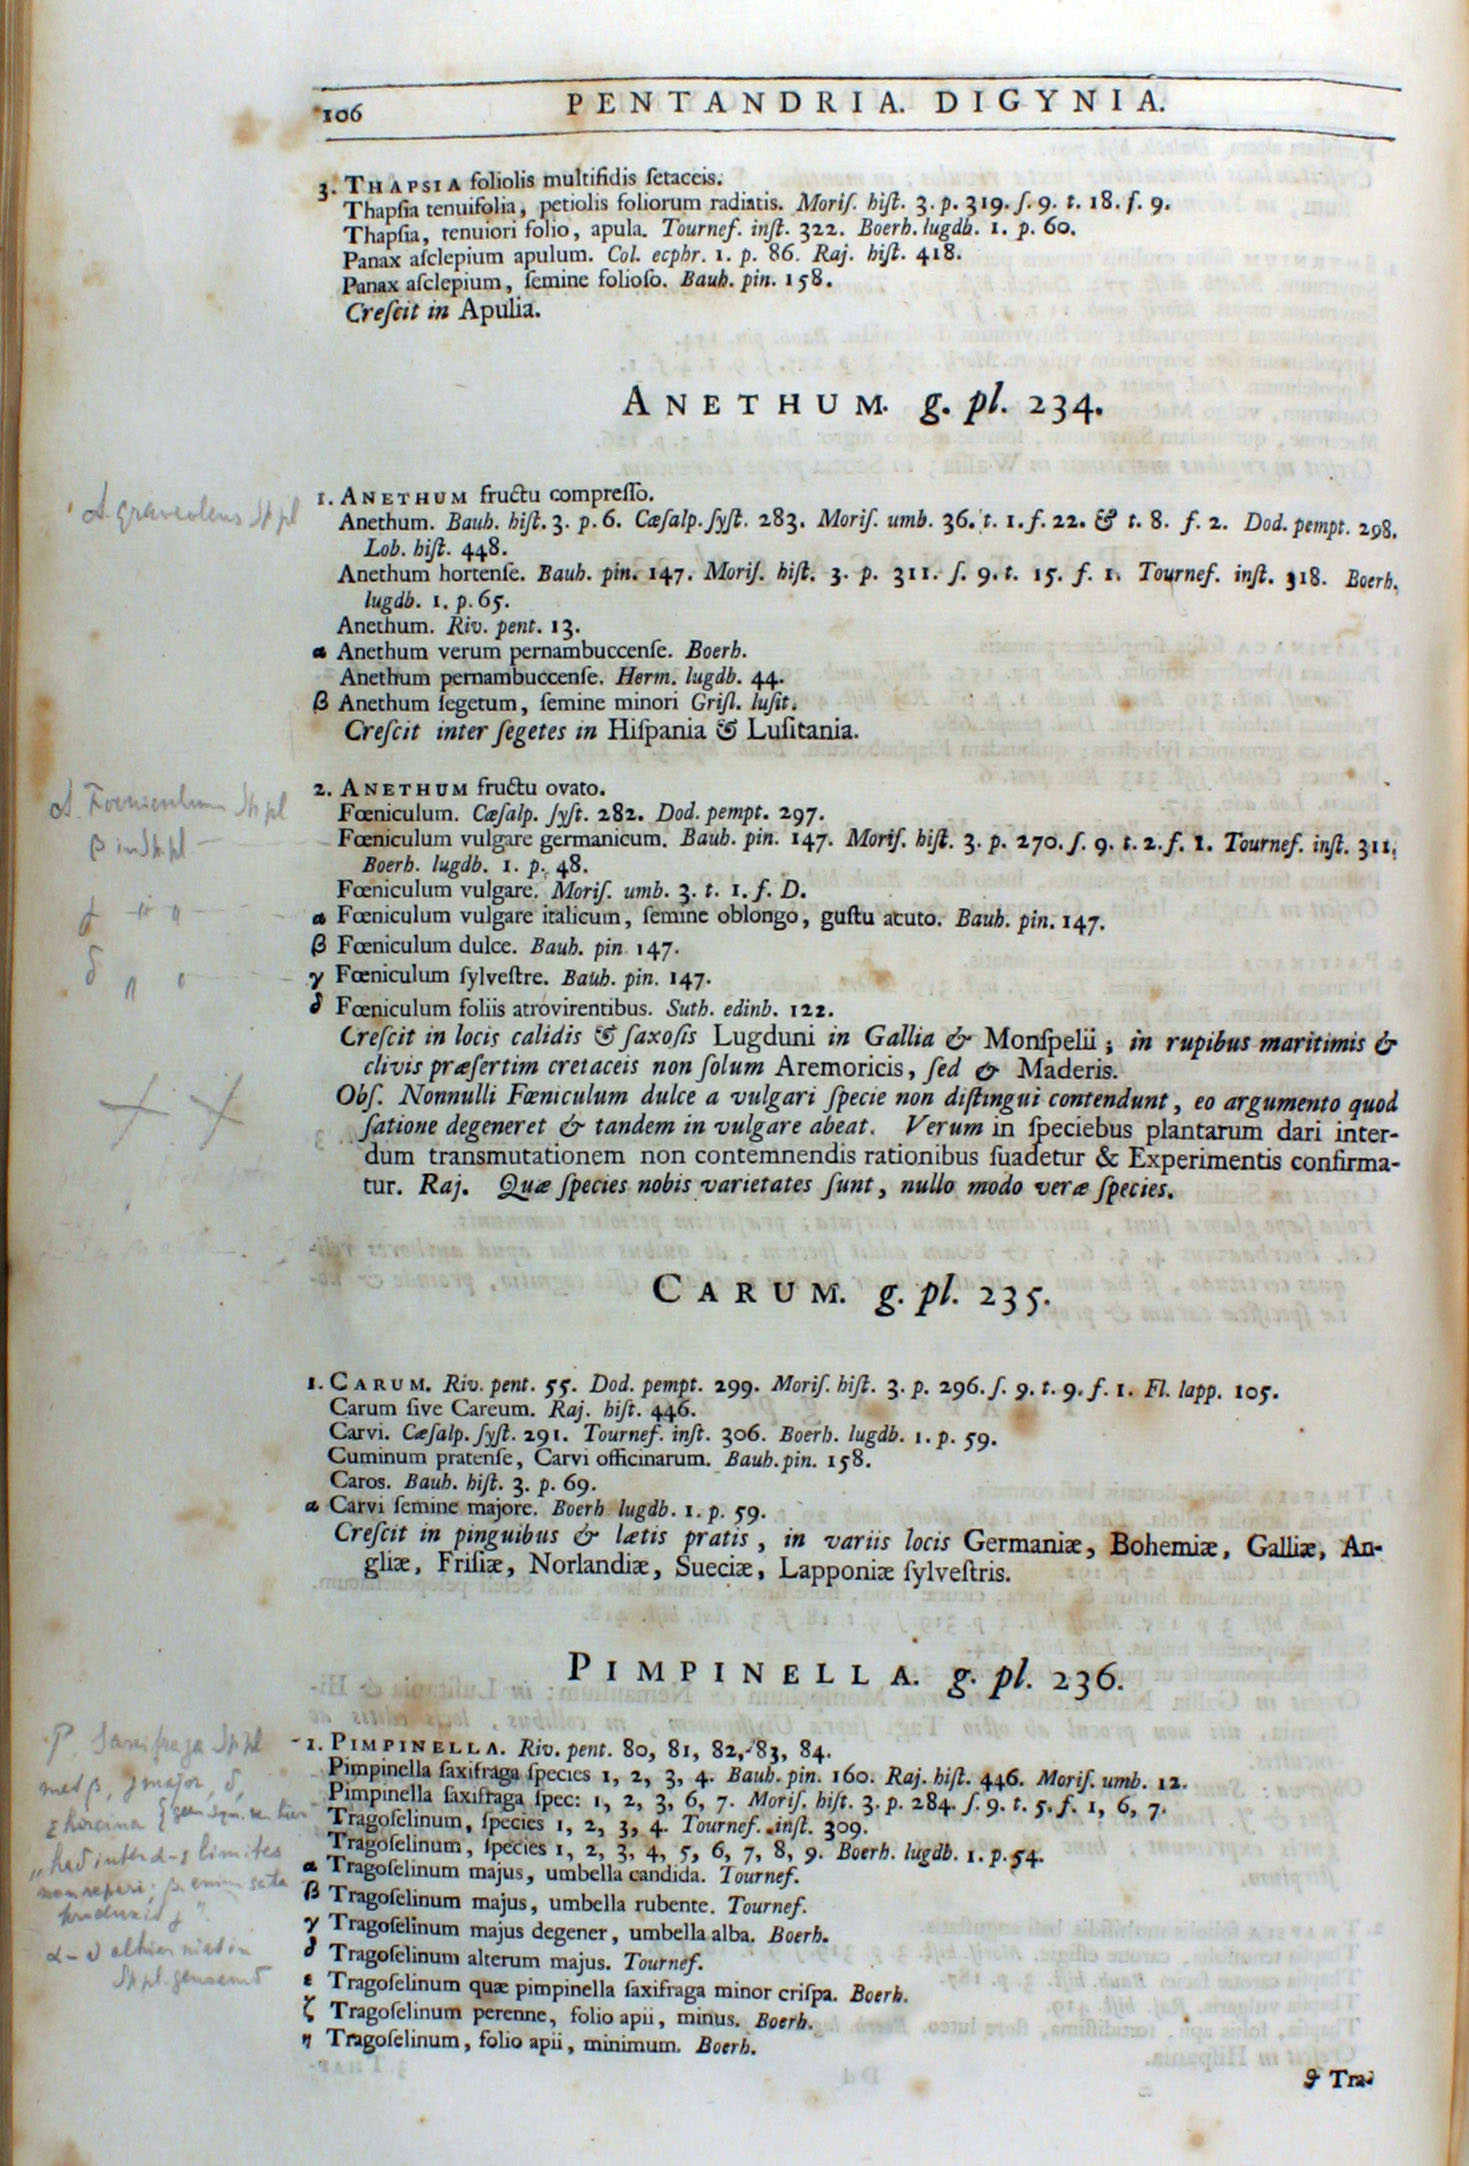 106 PENTANDRIA. DIGYNIA.
3. THAPSIA foliolis multifidis ſetaceis.
Thapſia tenuifolia, petiolis foliorum radiatis. Moriſ. hiſt. 3. p. 319. ſ. 9. t. 18. f. 9.
Thapſia, tenuiori folio, apula. Tournef. inſt. 322. Boerh. lugdb. 1. p. 60.
Panax aſclepium apulum. Col. ecphr. 1. p. 86. Raj. hiſt. 418.
Panax aſclepium, ſemine folioſo. Bauh. pin. 158.
Creſcit in Apulia.
ANETHUM. g. pl. 234.
A. graveolens Sp pl
1. ANETHUM fructu compreſſo.
Anethum. Bauh. hiſt. 3. p. 6. Cæſalp. ſyſt. 283. Moriſ. umb. 36. t. 1. f. 22. & t. 8. f. 2. Dod. pempt. 298.
Lob. hiſt. 448.
Anethum hortenſe. Bauh. pin. 147. Moriſ. hiſt. 3. p. 311. ſ. 9. t. 15. f. 1. Tournef. inſt. 318. Boerh.
lugdb. 1. p. 65.
Anethum. Riv. pent. 13.
α Anethum verum pernambuccenſe. Boerh.
Anethum pernambuccenſe. Herm. lugdb. 44.
β Anethum ſegetum, ſemine minori Griſl. luſit.
Creſcit inter ſegetes in Hiſpania & Luſitania.
A. Foeniculum Sp pl
β in Sp. pl
γ " "
δ " "
2. ANETHUM fructu ovato.
Fœniculum. Cæſalp. ſyſt. 282. Dod. pempt. 297.
Fœniculum vulgare germanicum. Bauh. pin. 147. Moriſ. hiſt. 3. p. 270. ſ. 9. t. 2. f. 1. Tournef. inſt. 311.
Boerh. lugdb. 1. p. 48.
Fœniculum vulgare. Moriſ. umb. 3. t. 1. f. D.
α Fœniculum vulgare italicum, ſemine oblongo, guſtu acuto. Bauh. pin. 147.
β Fœniculum dulce. Bauh. pin 147.
γ Fœniculum ſylveſtre. Bauh. pin. 147.
δ Fœniculum foliis atrovirentibus. Suth. edinb. 122.
Creſcit in locis calidis & ſaxoſis Lugduni in Gallia & Monſpelii; in rupibus maritimis &
clivis præſertim cretaceis non ſolum Aremoricis, ſed & Maderis.
Obſ. Nonnulli Fœniculum dulce a vulgari ſpecie non diſtingui contendunt, eo argumento quod
ſatione degeneret & tandem in vulgare abeat. Verum in ſpeciebus plantarum dari inter-
dum transmutationem non contemnendis rationibus ſuadetur & Experimentis confirma-
tur. Raj. Quæ ſpecies nobis varietates ſunt, nullo modo veræ ſpecies.
CARUM. g. pl. 235.
1. CARUM. Riv. pent. 55. Dod. pempt. 299. Moriſ. hiſt. 3. p. 296. ſ. 9. t. 9. f. 1. Fl. lapp. 105.
Carum ſive Careum. Raj. hiſt. 446.
Carvi. Cæſalp. ſyſt. 291. Tournef. inſt. 306. Boerh. lugdb. 1. p. 59.
Cuminum pratenſe, Carvi officinarum. Bauh. pin. 158.
Caros. Bauh. hiſt. 3. p. 69.
α Carvi ſemine majore. Boerh lugdb. 1. p. 59.
Creſcit in pinguibus & lætis pratis, in variis locis Germaniæ, Bohemiæ, Galliæ, An-
gliæ, Friſiæ, Norlandiæ, Sueciæ, Lapponiæ ſylveſtris.
PIMPINELLA. g. pl. 236.
P. Saxifraga Sp pl
met β, γ major, δ,
ε hircina
limites
α – δ
Sp pl. genoemd
1. PIMPINELLA. Riv. pent. 80, 81, 82, 83, 84.
Pimpinella ſaxifraga ſpecies 1, 2, 3, 4. Bauh. pin. 160. Raj. hiſt. 446. Moriſ. umb. 12.
Pimpinella ſaxifraga ſpec: 1, 2, 3, 6, 7. Moriſ. hiſt. 3. p. 284. ſ. 9. t. 5. f. 1, 6, 7.
Tragoſelinum, ſpecies 1, 2, 3, 4. Tournef. inſt. 309.
Tragoſelinum, ſpecies 1, 2, 3, 4, 5, 6, 7, 8, 9. Boerh. lugdb. 1. p. 54.
α Tragoſelinum majus, umbella candida. Tournef.
β Tragoſelinum majus, umbella rubente. Tournef.
γ Tragoſelinum majus degener, umbella alba. Boerh.
δ Tragoſelinum alterum majus. Tournef.
ε Tragoſelinum quæ pimpinella ſaxifraga minor criſpa. Boerh.
ζ Tragoſelinum perenne, folio apii, minus. Boerh.
η Tragoſelinum, folio apii, minimum. Boerh.
ϑ Tra-